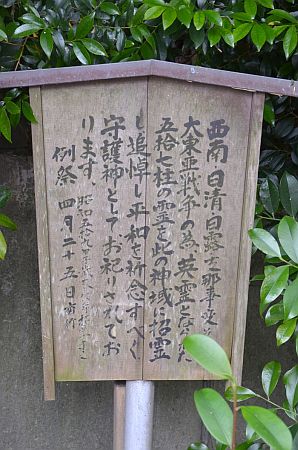 西南 日清 日露 支那事変
大東亜戦争の為、英霊となられた
五拾七柱の霊を此の神域に招霊
し追悼し平和を祈念すべく
守護神としてお祀りされてお
ります。
例祭 四月二十五日